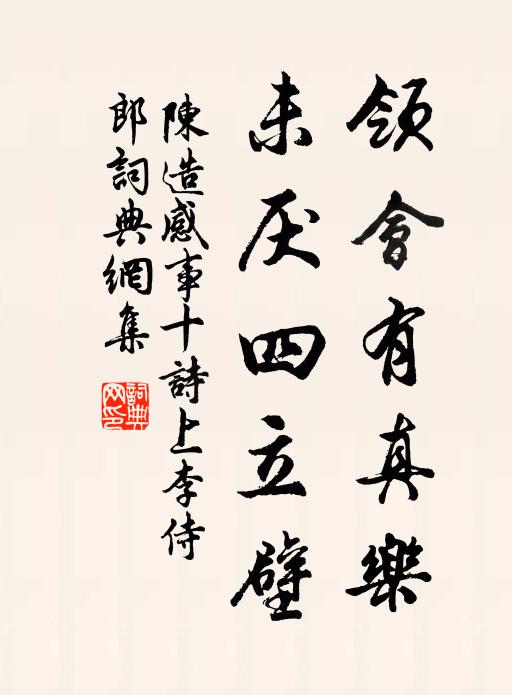 領會有真樂
未厌四立壁
陳造感事十詩上李侍
郎詞典網集
詞典網印